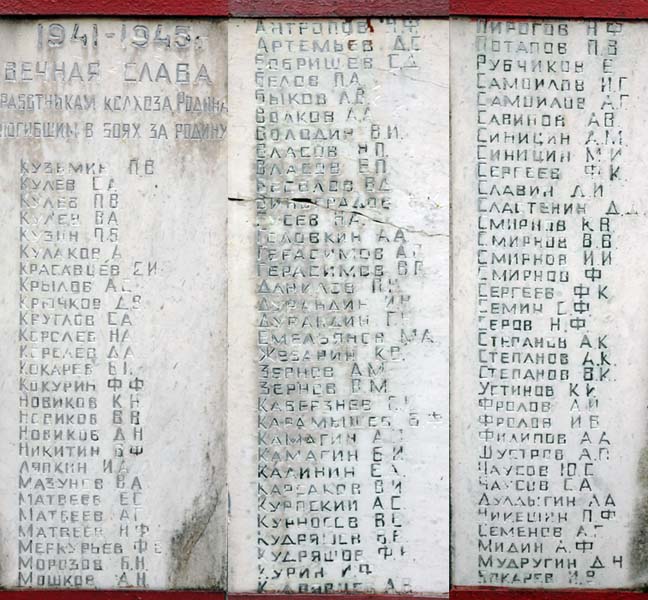 1941-1945г.
ВЕЧНАЯ СЛАВА
РАБОТНИКАМ КОЛХОЗА РОДИНА
ПОГИБШИМ В БОЯХ ЗА РОДИНУ
КУЗЬМИН П.В
КУЛЕВ С.А
КУЛЕВ П.В
КУЛЕН В.А
КУЗИН
КУЛАКОВ А
КРАСАВЦЕВ С.И
КРЫЛОВ А.С
КРЮЧКОВ Д.Я
КРУГЛОВ С.А
КОРОЛЕВ Н.А
КОРОЛЕВ Д.А
КОКАРЕВ
КОКУРИН Ф.Ф
НОВИКОВ К.Н
НОВИКОВ В.В
НОВИКОВ Д.Н
НИКИТИН Б.Ф
ЛЯПКИН И.А
МАЗУНОВ В.А
МАТВЕЕВ Е.С
МАТВЕЕВ А.Г
МАТВЕЕВ Н.Ф
МЕРКУРЬЕВ Ф.Е
МОРОЗОВ Б.Н
МОШКОВ А.Н
АНТРОПОВ Н.Ф
АРТЕМЬЕВ Д.С
БОБРИЩЕВ С.Д
БЕЛОВ П.А
БЫКОВ А.В
ВОЛКОВ А.А
ВОЛОДИН В.И
ВЛАСОВ Н.П
ВЛАСОВ Е.П
ВЕСЕЛОВ В.Д
ВИНОГРАДОВ
ГУСЕВ Н.А
ГОЛОВКИН А.А
ГЕРАСИМОВ А.Г
ГЕРАСИМОВ В.Г
ДАНИЛОВ
ДУРАНДИН И.Я
ДУРАНДИН
ЕМЕЛЬЯНОВ М.А
ЖЕЗАРИН К.Ф
ЗЕРНОВ А.М
ЗЕРНОВ В.М
КАВЕРЗНЕВ
КАРАМЫШЕВ Б.Ф
КАМАГИН А.С
КАМАГИН Б.И
КАЛИНИН Е.А
КАРСАКОВ В.И
КУРОСКИЙ А.С
КУРНОСОВ В.С
КУДРЯШОВ
КУДРЯШОВ
КУРИН
ПИРОГОВ Н.Ф
ПОТАПОВ П.В
РУБЧИКОВ Е
САМОИЛОВ И.Г
САМОИЛОВ А.Г
САВИНОВ А.В
СИНИЦИН А.М
СИНИЦИН М.И
СЕРГЕЕВ Ф.К
СЛАВИН Л.И
СЛАСТЕНИН Д.Д
СМИРНОВ К.В
СМИРНОВ В.В
СМИРНОВ И.И
СМИРНОВ Ф
СЕРГЕЕВ Ф.К
СЕМИН С.Ф
СЕРОВ Н.Ф
СТЕПАНОВ А.К
СТЕПАНОВ Д.К
СТЕПАНОВ В.К
УСТИНОВ К.И
ФРОЛОВ А.И
ФРОЛОВ И.В
ФИЛИПОВ А.А
ШУСТРОВ А.П
ЧАУСОВ Ю.С
ЧАУСОВ С.А
ДУЛДЫГИН А.А
ЧИМЕШИН П.Ф
СЕМЕНОВ А.Г
МИДИН А.Ф
МУДРУГИН Д.Н
КОКАРЕВ